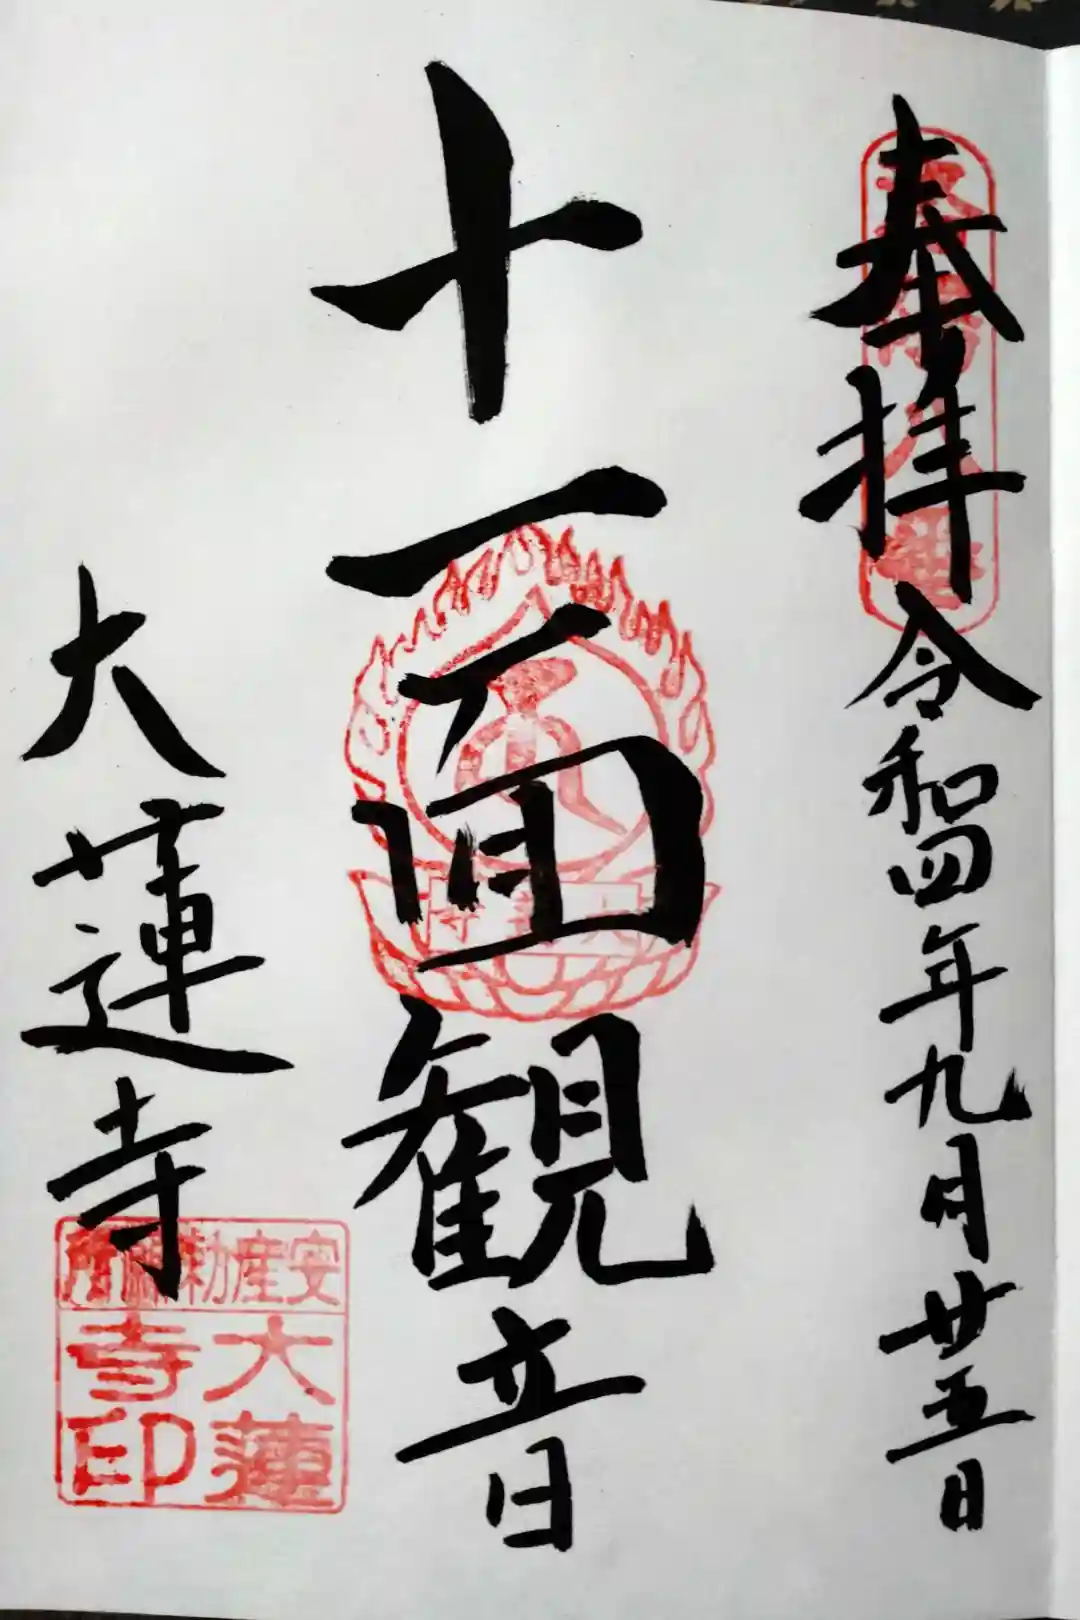 奉拝
令和四年九月廿五日
十一面観音
大蓮寺
安産勅願所
大蓮寺印
大蓮寺